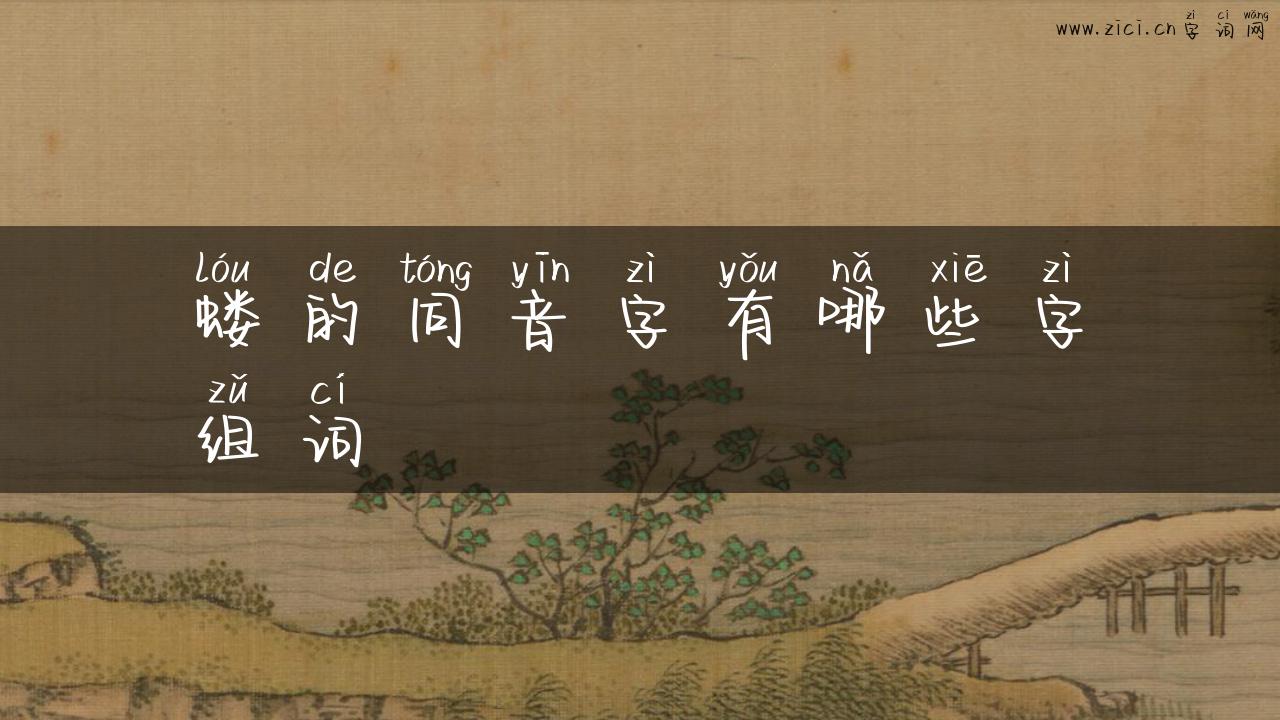 zì cí wǎng
www.zici.cn 字 词 网
lóu de tóng yīn zì yǒu nǎ xiē zì
蝼 的 同 音 字 有 哪 些 字
zǔ cí
组 词